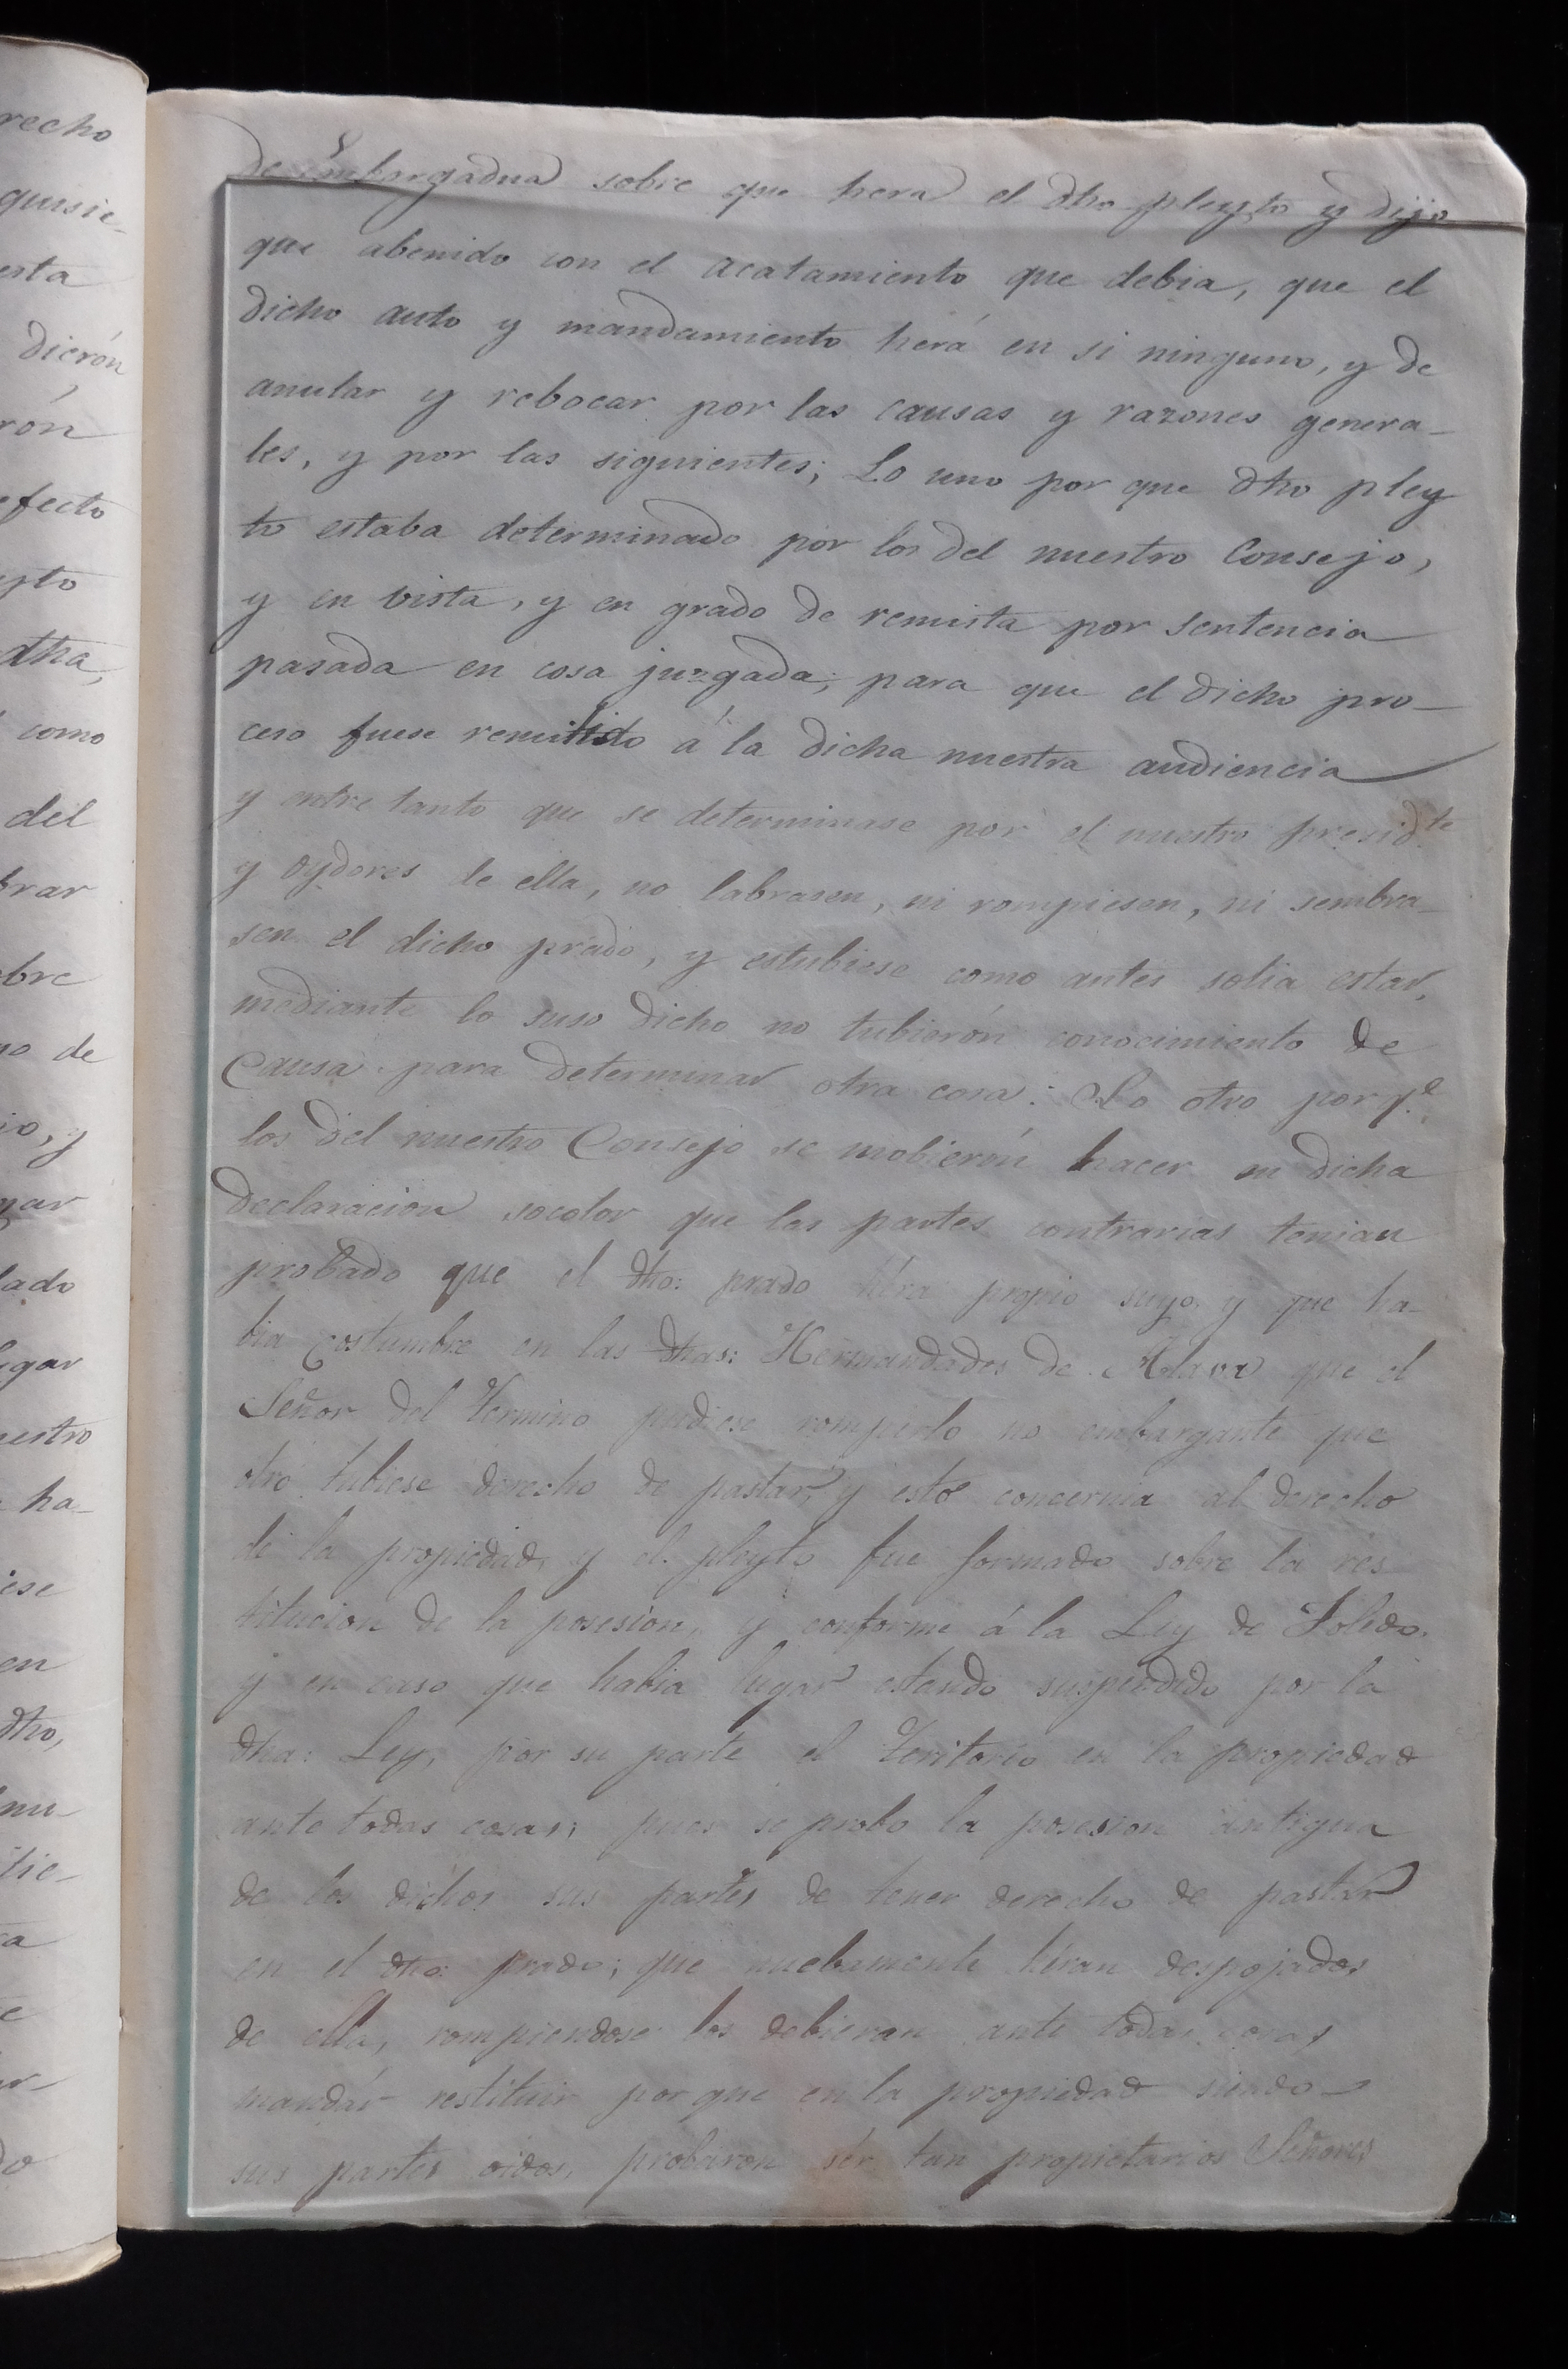 recho
quisie-
esta
dierón
rón
efecto
yto
dha,
como
del
brar
bre
no de
io, y
lado
ugar
uestro
ha-
iese
en
dho,
mu-
tie-
a
do
de Embargadua sobre que hera el dho pleyto y dijo
que abenido con el acatamiento que debia, que el
dicho auto y mandamiento herá en si ninguno, y de
anular y rebocar por las causas y razones genera-
les, y por las siguientes; Lo uno por que dho pley
to estaba determinado por los del nuestro Consejo,
y en vista, y en grado de revista por sentencia
pasada en cosa juzgada; para que el dicho pro-
ceso fuese remitido á la dicha nuestra audiencia
y entre tanto que se determinase por el nuestro presidte
y oydores de ella, no labrasen, ni rompiesen, ni sembra-
sen el dicho prado, y estubiese como antes solia estar,
mediante lo suso dicho no tubierón conocimiento de
Causa para determinar otra cosa: Lo otro por qe
los del nuestro Consejo se mobierón hacer su dicha
declaracion socolor que las partes contrarias tenian
probado que el dho: prado héra propio suyo, y que ha-
bia costumbre en las dhas: Hermandades de Alava que el
Señor del Termino pudiese romperlo no embargante que
otro tubiese derecho de pastar, y esto concernia al derecho
de la propiedad, y el pleyto fue formado sobre la res
titucion de la posesion, y conforme á la Ley de Toledo.
y en caso que habia lugar estando suspendido por la
dha: Ley, por su parte el Teritorio en la propiedad
ante todas cosas; pues se probo la posesion antigua
de los dichos sus partes de tener derecho de pastar
en el dho: prado; que nuebamente héran despojados
de ella, rompiendose los debieran ante todas cosas
mandar restituir por que en la propiedad siendo
sus partes oidos, probaron ser tan propietarios Señores